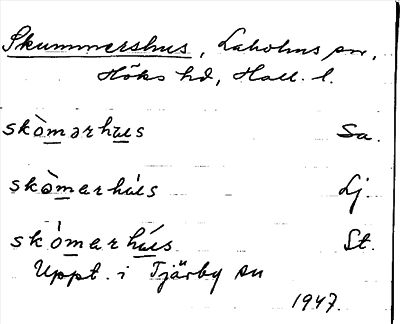 Skummershus, Laholms sn,
Höks hd, Hall. l.
skòmərhus Sa.
skòmerhu̇s Lj.
skòmerhúis St.
Uppt. i Tjärby sn
1947.